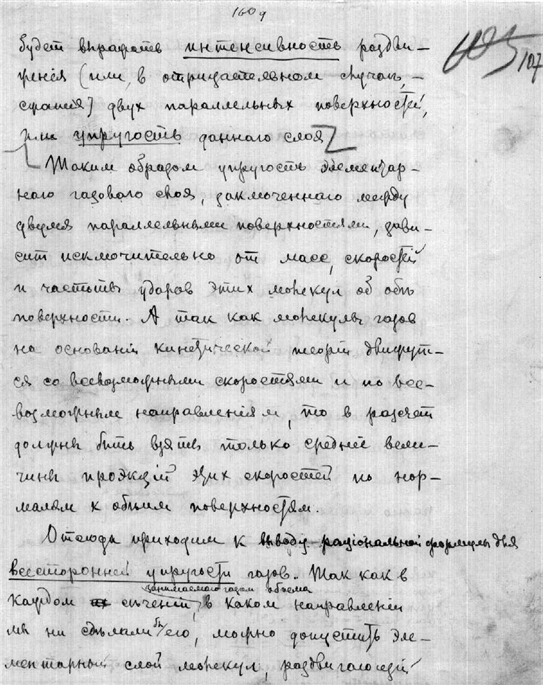 160 д
будетъ выражать интенсивность раздви-
женія (или, въ отрицательномъ случаѣ, -
сжатія) двухъ параллельныхъ поверхностей,
или упругость даннаго слоя
107
Такимъ образомъ упругость элементар-
наго газоваго слоя, заключеннаго между
двумя параллельными поверхностями, зави-
ситъ исключительно отъ массъ, скоростей
и частоты ударовъ этихъ молекулъ объ обѣ
поверхности. А такъ какъ молекулы газовъ
на основаніи кинетической теоріи движут-
ся со всевозможными скоростями и по все-
возможнымъ направленіямъ, то въ разсчетъ
должны быть взяты только среднія вели-
чины проэкцій этихъ скоростей по нор-
малямъ къ обѣимъ поверхностямъ.
Отсюда приходимъ къ выводу раціональной формулы для
всесторонней упругости газовъ. Такъ какъ въ
занимаемаго газомъ объема
каждомъ сѣченіи, въ какомъ направленіи
мы ни сдѣлали бы его, можно допустить эле-
ментарный слой молекулъ, раздвигающій